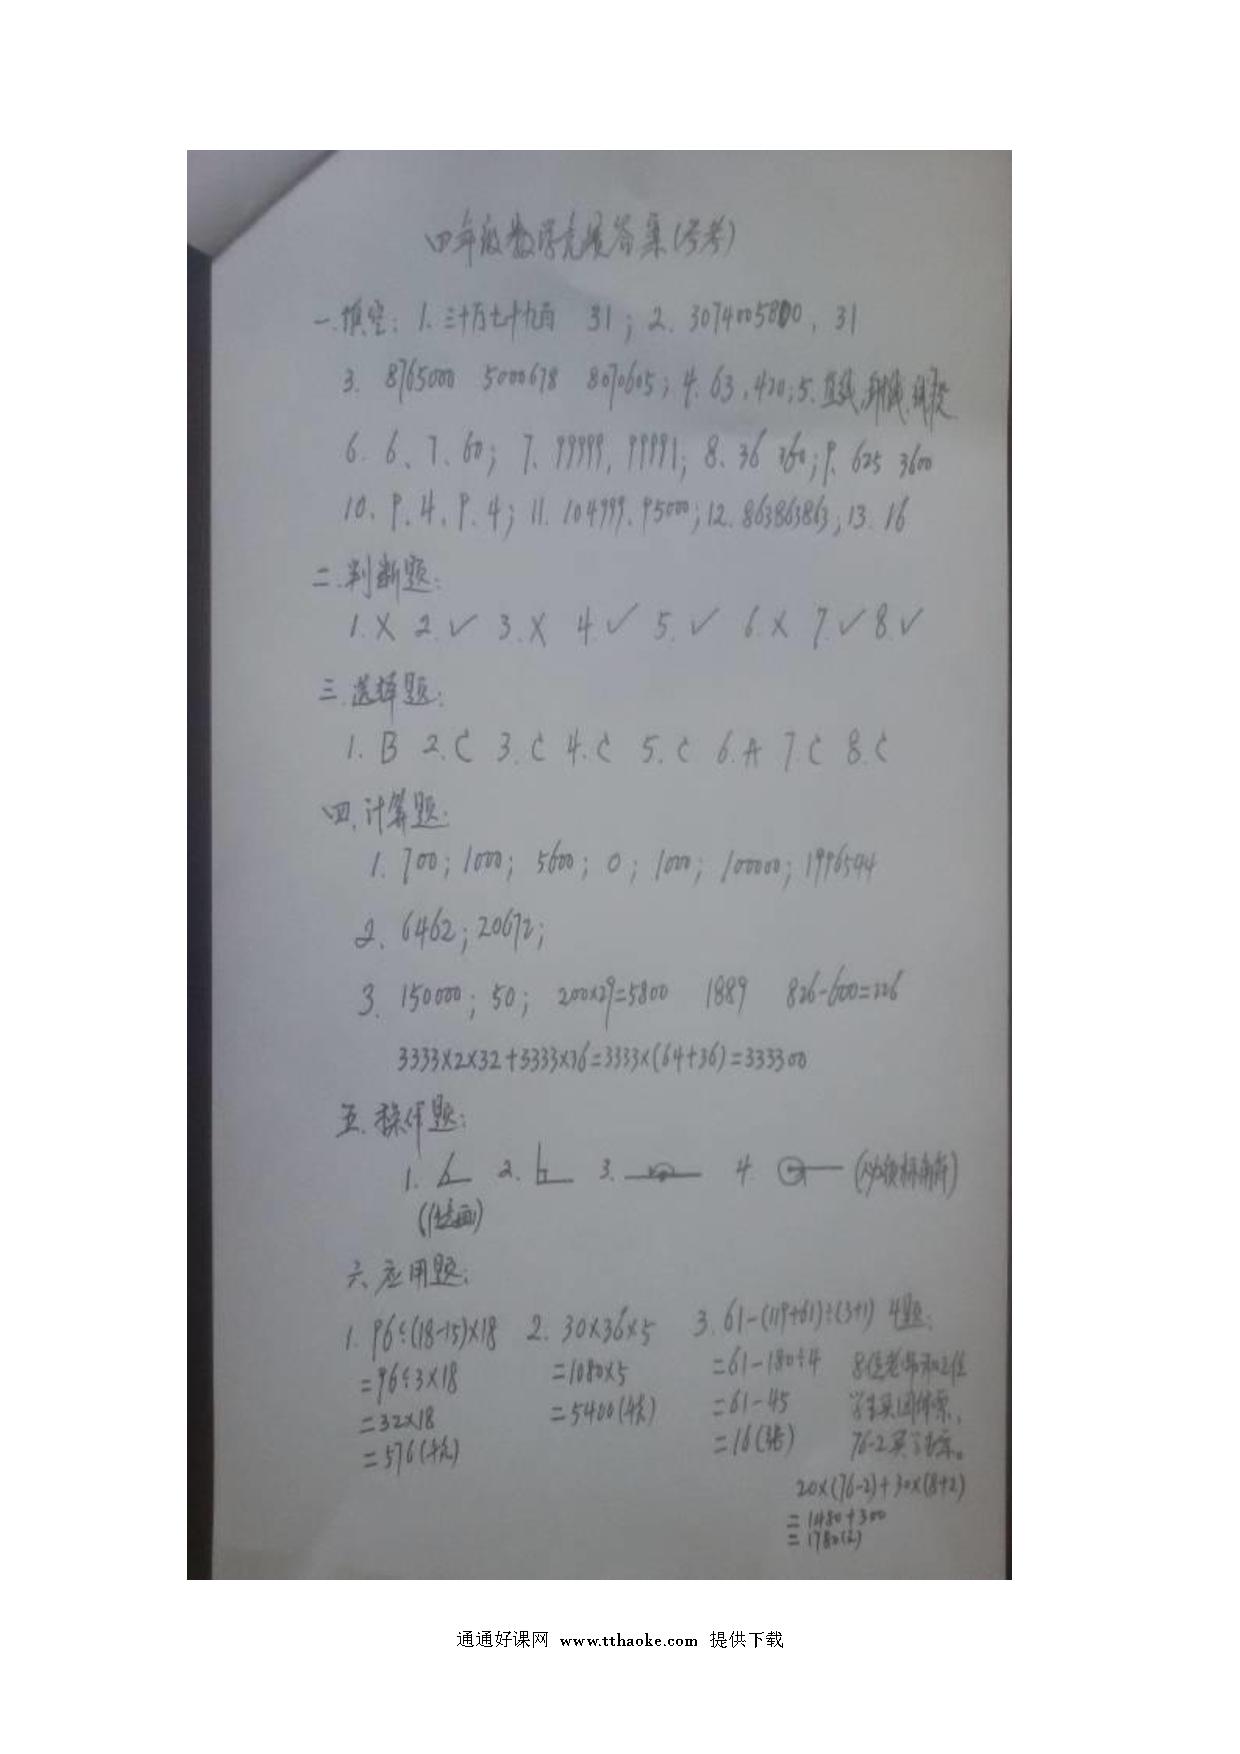 四年级数学竞赛答案(参考)
一.填空: 1. 三十万七十九百 31; 2. 3074005800, 31
3. 8765000 5000678 8070605; 4. 63, 420; 5. 直线, 射线, 线段
6. 6、7、60; 7. 99999, 99991; 8. 36 360; 9. 625 3600
10. 9. 4. 9. 4; 11. 104999. 95000; 12. 863863863; 13. 16
二.判断题:
1. X 2. ✓ 3. X 4 ✓ 5. ✓ 6. X 7. ✓ 8. ✓
三.选择题:
1. B 2. C 3. C 4. C 5. C 6. A 7. C 8. C
四.计算题:
1. 700; 1000; 5600; 0; 1000; 100000; 1996544
2. 6462; 20672;
3. 150000; 50; 200×29=5800 1889 826-600=226
3333×2×32+3333×36=3333×(64+36)=333300
五.操作题:
1. 2. 3. 4. (必须标角符)
(任画)
六.应用题:
1. 96÷(18-15)×18 2. 30×36×5 3. 61-(119+61)÷(3+1) 4题:
=96÷3×18 =1080×5 =61-180÷4 8位老师和2位
=32×18 =5400(千克) =61-45 学生买团体票,
=576(千克) =16(张) 76-2买学生票。
20×(76-2)+30×(8+2)
=1480+300
=1780(元)
通通好课网 www.tthaoke.com 提供下载